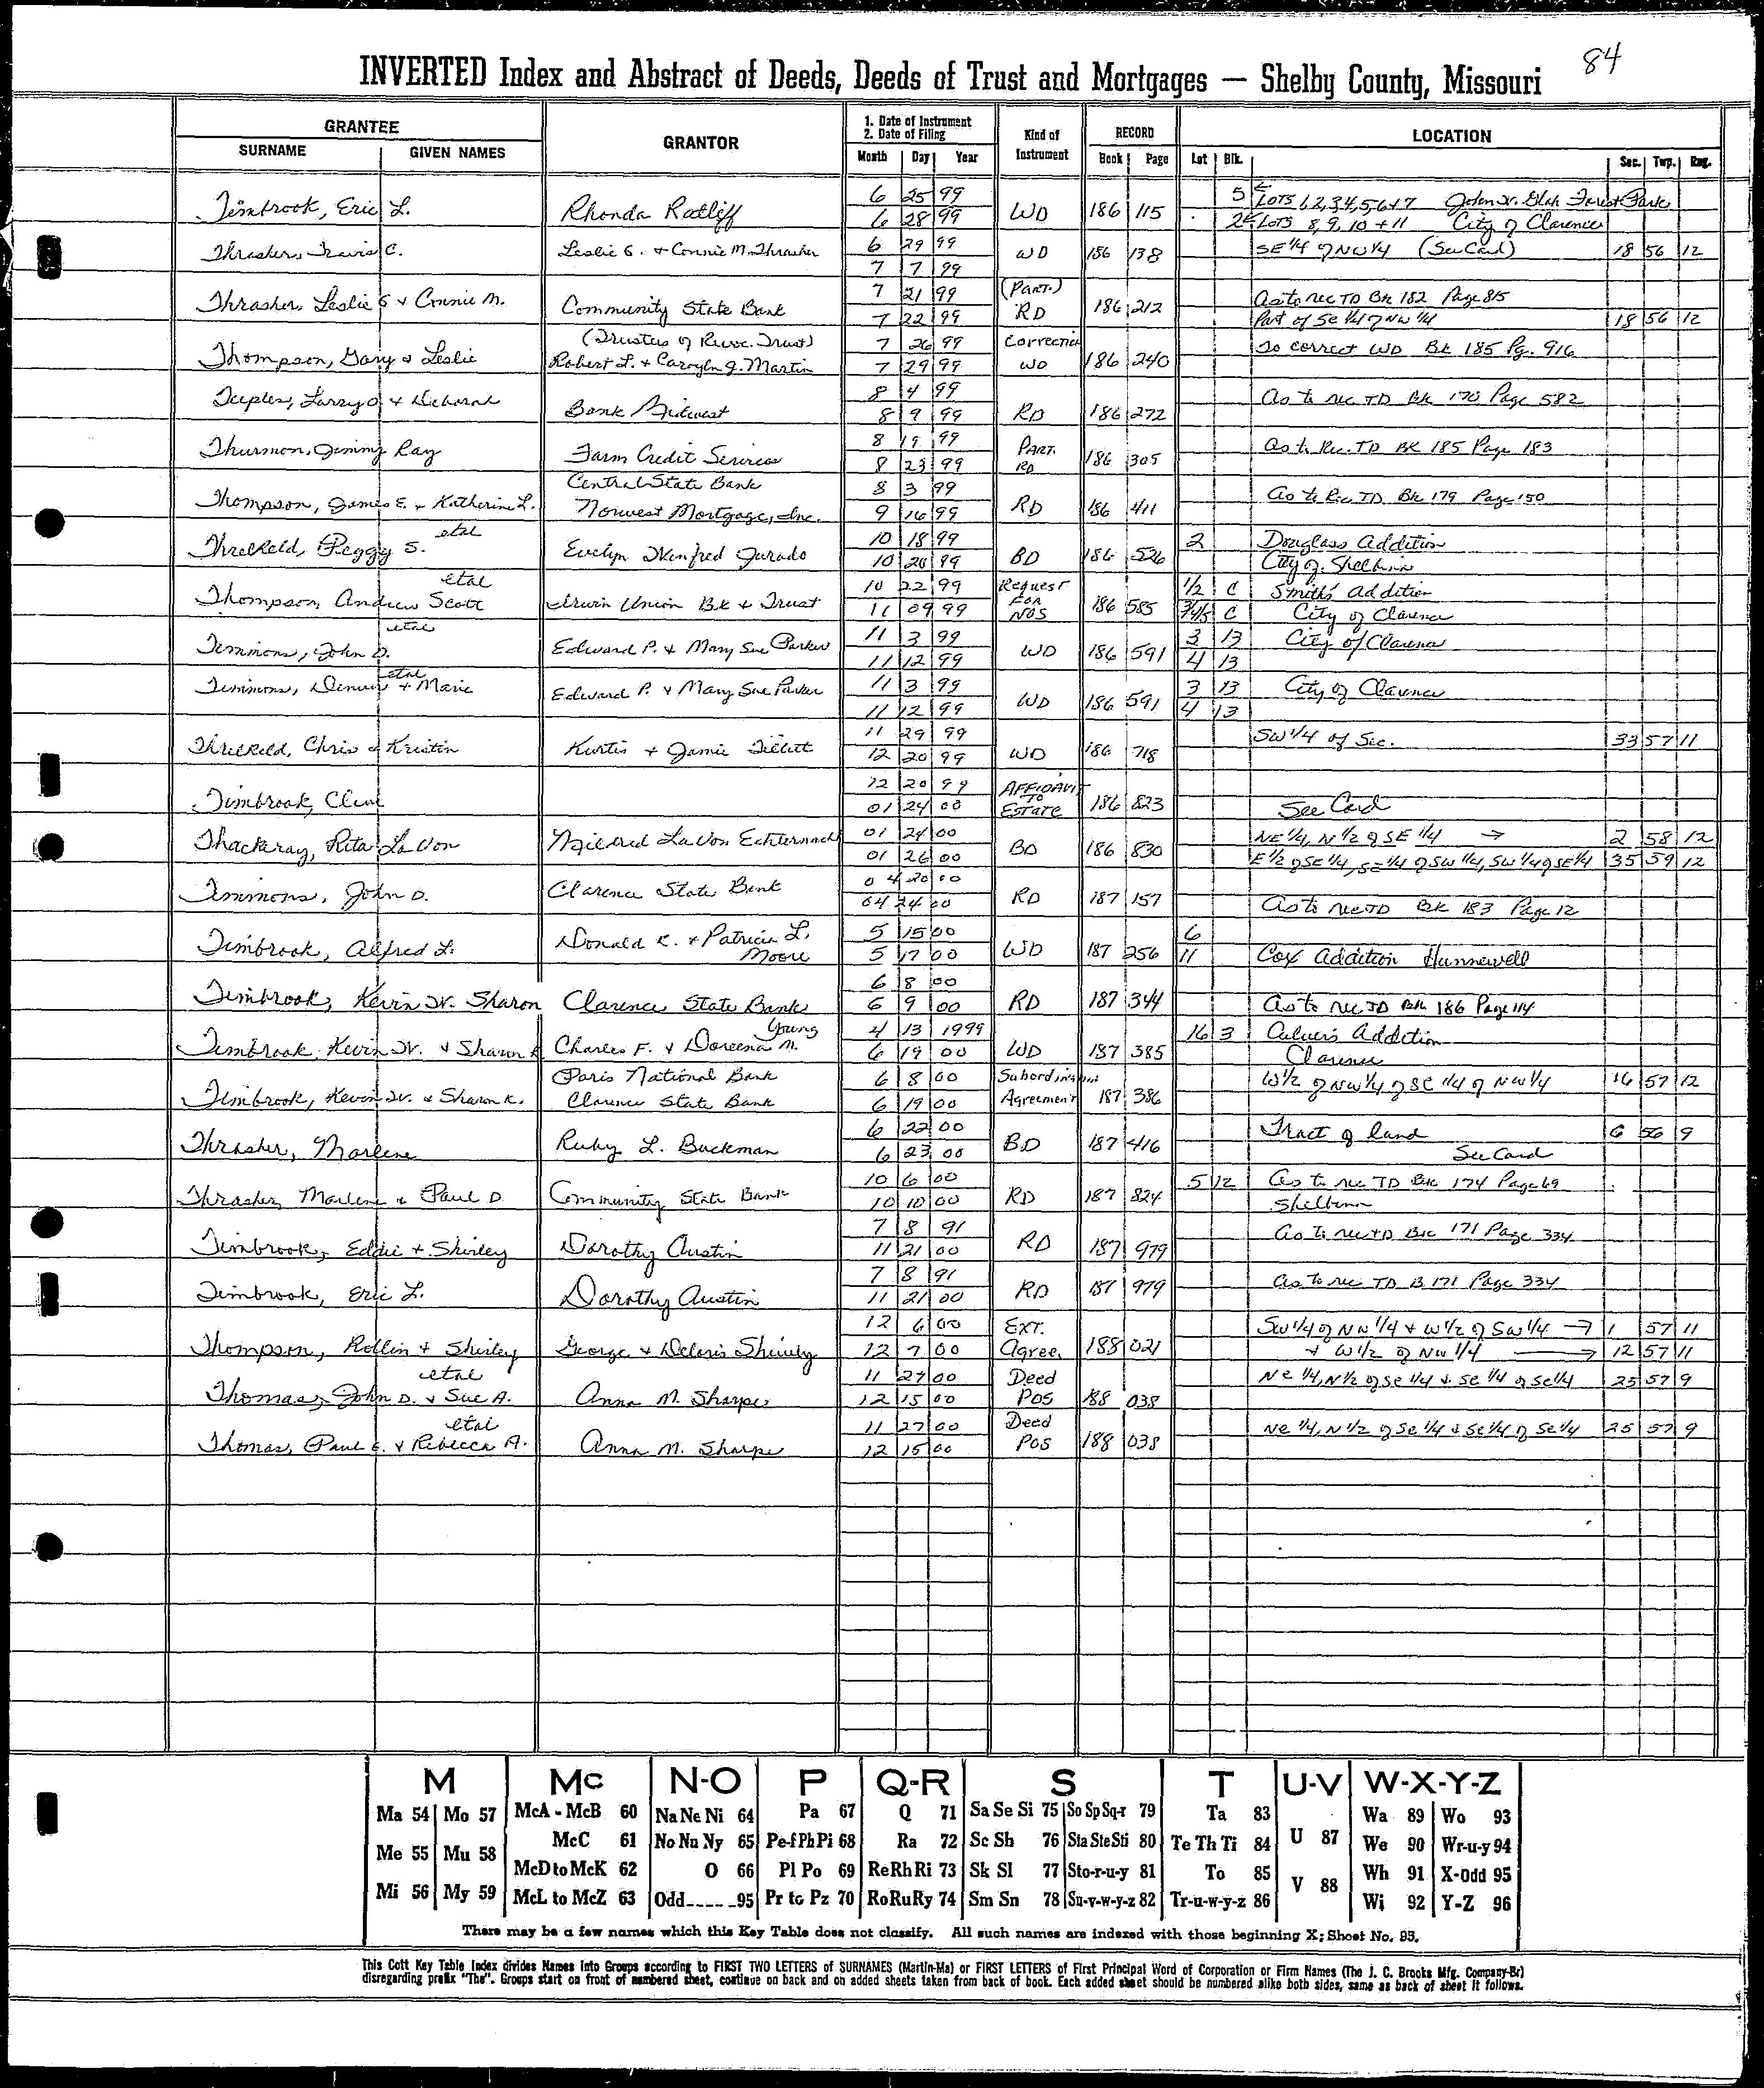 84
INVERTED Index and Abstract of Deeds, Deeds of Trust and Mortgages — Shelby County, Missouri
GRANTEE GRANTOR 1. Date of Instrument 2. Date of Filing Kind of Instrument RECORD LOCATION
SURNAME GIVEN NAMES Month Day Year Book Page Lot Blk. Sec. Twp. Rng.
Timbrook, Eric L. Rhonda Ratliff 6 25 99 WD 186 115 5 Lots 1,2,3,4,5,6+7 John W. Forest Park
6 28 99 Lots 8, 9, 10 + 11 City of Clarence
Thrasher, Travis C. Leslie G. + Connie M. Thrasher 6 29 99 WD 186 138 SE 1/4 of NW 1/4 (See Card) 18 56 12
7 7 99
Thrasher, Leslie G + Connie M. Community State Bank 7 21 99 (Part.) RD 186 212 As to rec TD Bk 182 Page 815
7 22 99 Part of SE 1/4 of NW 1/4 18 56 12
Thompson, Gary + Leslie (Trustees of Revoc. Trust) Robert L. + Carolyn J. Martin 7 26 99 Correction WD 186 240 To correct WD Bk 185 Pg. 916
7 29 99
Teeples, Larry D + Deborah Bank Midwest 8 4 99 RD 186 272 As to rec TD Bk 170 Page 582
8 9 99
Thurmon, Jimmy Ray Farm Credit Services 8 19 99 Part. RD 186 305 As to Rec. TD BK 185 Page 183
8 23 99
Thompson, James E. + Katherine L. Central State Bank Norwest Mortgage, Inc. 8 3 99 RD 186 411 As to Rec TD Bk 179 Page 150
9 16 99
Threlkeld, Peggy S. etal Evelyn Winfred Jurado 10 18 99 BD 186 526 2 Douglass Addition
10 20 99 City of Shelbina
Thompson, Andrew Scott etal Irwin Union Bk + Trust 10 22 99 Request For NOS 186 585 1/2 C Smith's Addition
11 09 99 3/4/5 C City of Clarence
Timmons, John D. etal Edward P. + Mary Sue Parker 11 3 99 WD 186 591 3 13 City of Clarence
11 12 99 4 13
Timmons, Dennis + Marie etal Edward P. + Mary Sue Parker 11 3 99 WD 186 591 3 13 City of Clarence
11 12 99 4 13
Threlkeld, Chris + Kristin Kurtis + Jamie Tillett 11 29 99 WD 186 718 SW 1/4 of Sec. 33 57 11
12 20 99
Timbrook, Clint 12 20 99 Affidavit To Estate 186 823 See Card
01 24 00
Thackeray, Rita LaVon Mildred LaVon Echternach 01 24 00 BD 186 830 NE 1/4, N 1/2 of SE 1/4 → 2 58 12
01 26 00 E 1/2 of SE 1/4, SE 1/4 of SW 1/4, SW 1/4 of SE 1/4 35 59 12
Timmons, John D. Clarence State Bank 04 20 00 RD 187 157 As to rec TD Bk 183 Page 12
04 24 00
Timbrook, Alfred L. Donald R. + Patricia L. Moore 5 15 00 WD 187 256 6
5 17 00 11 Cox Addition Hunnewell
Timbrook, Kevin W. Sharon Clarence State Bank 6 8 00 RD 187 344 As to rec TD Bk 186 Page 114
6 9 00
Timbrook, Kevin W. + Sharon K Charles F. + Doreena M. Young 4 13 1999 WD 187 385 16 3 Culver's Addition
6 19 00 Clarence
Timbrook, Kevin W. + Sharon K. Paris National Bank Clarence State Bank 6 8 00 Subordination Agreement 187 386 W 1/2 of NW 1/4 of SE 1/4 of NW 1/4 16 57 12
6 19 00
Thrasher, Marlene Ruby L. Buckman 6 22 00 BD 187 416 Tract of land 6 56 9
6 23 00 See Card
Thrasher, Marlene + Paul D. Community State Bank 10 6 00 RD 187 824 5 12 As to rec TD Bk 174 Page 69
10 10 00 Shelbina
Timbrook, Eddie + Shirley Dorothy Austin 7 8 91 RD 187 979 As to rec TD Bk 171 Page 334
11 21 00
Timbrook, Eric L. Dorothy Austin 7 8 91 RD 187 979 As to rec TD B 171 Page 334
11 21 00
Thompson, Rollin + Shirley George + Deloris Shively 12 6 00 Ext. Agree. 188 021 SW 1/4 of NW 1/4 + W 1/2 of SW 1/4 → 1 57 11
12 7 00 + W 1/2 of NW 1/4 → 12 57 11
Thomas, John D. + Sue A. etal Anna M. Sharpe 11 27 00 Deed POS 188 038 NE 1/4, N 1/2 of SE 1/4 + SE 1/4 of SE 1/4 25 57 9
12 15 00
Thomas, Paul E. + Rebecca A. etal Anna M. Sharpe 11 27 00 Deed POS 188 038 NE 1/4, N 1/2 of SE 1/4 + SE 1/4 of SE 1/4 25 57 9
12 15 00
M Mc N-O P Q-R S T U-V W-X-Y-Z
Ma 54 Mo 57 McA - McB 60 Na Ne Ni 64 Pa 67 Q 71 Sa Se Si 75 So Sp Sq-r 79 Ta 83 Wa 89 Wo 93
Me 55 Mu 58 McC 61 No Nu Ny 65 Pe-f Ph Pi 68 Ra 72 Sc Sh 76 Sta Ste Sti 80 Te Th Ti 84 U 87 We 90 Wr-u-y 94
McD to McK 62 O 66 Pl Po 69 Re Rh Ri 73 Sk Sl 77 Sto-r-u-y 81 To 85 V 88 Wh 91 X-Odd 95
Mi 56 My 59 McL to McZ 63 Odd 95 Pr to Pz 70 Ro Ru Ry 74 Sm Sn 78 Su-v-w-y-z 82 Tr-u-w-y-z 86 Wi 92 Y-Z 96
There may be a few names which this Key Table does not classify. All such names are indexed with those beginning X; Sheet No. 95.
This Cott Key Table Index divides Names into Groups according to FIRST TWO LETTERS of SURNAMES (Martin-Ma) or FIRST LETTERS of First Principal Word of Corporation or Firm Names (The J. C. Brooks Mfg. Company-Br)
disregarding prefix "The". Groups start on front of numbered sheet, continue on back and on added sheets taken from back of book. Each added sheet should be numbered alike both sides, same as back of sheet it follows.